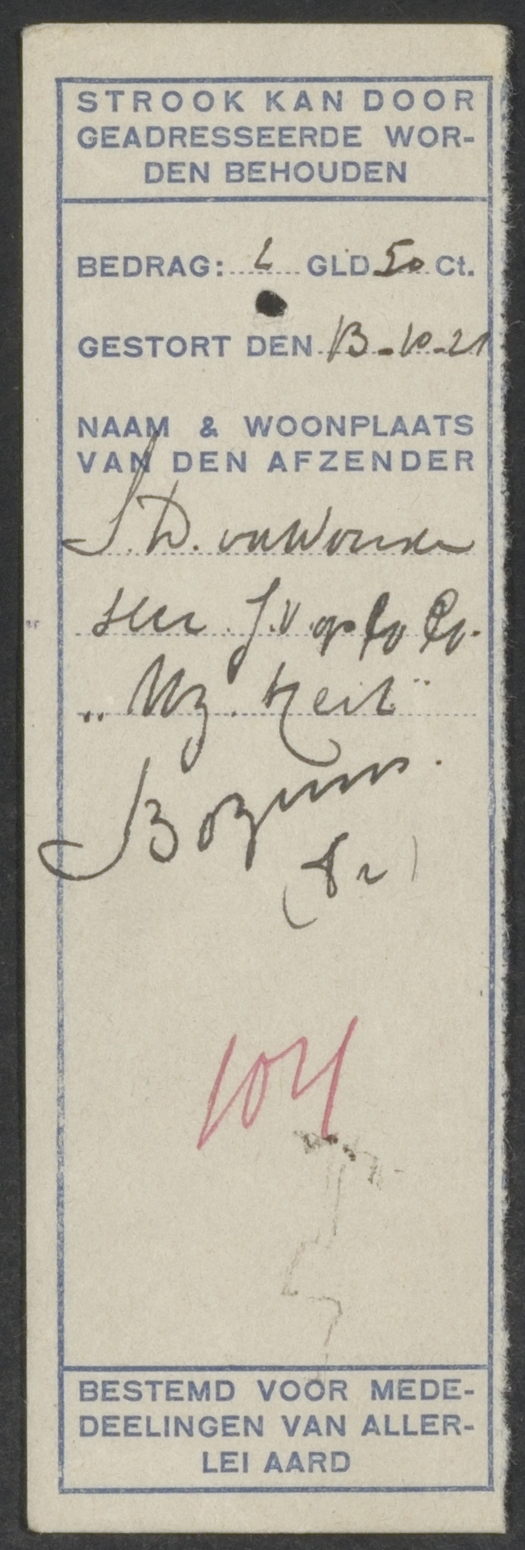 STROOK KAN DOOR
GEADRESSEERDE WOR-
DEN BEHOUDEN
BEDRAG: 2 GLD 50 Ct.
GESTORT DEN 13-10-21
NAAM & WOONPLAATS
VAN DEN AFZENDER
S. D. v
Secr. J.V. op Co.
"Mz.
Bozum.
(Fr)
104
BESTEMD VOOR MEDE-
DEELINGEN VAN ALLER-
LEI AARD